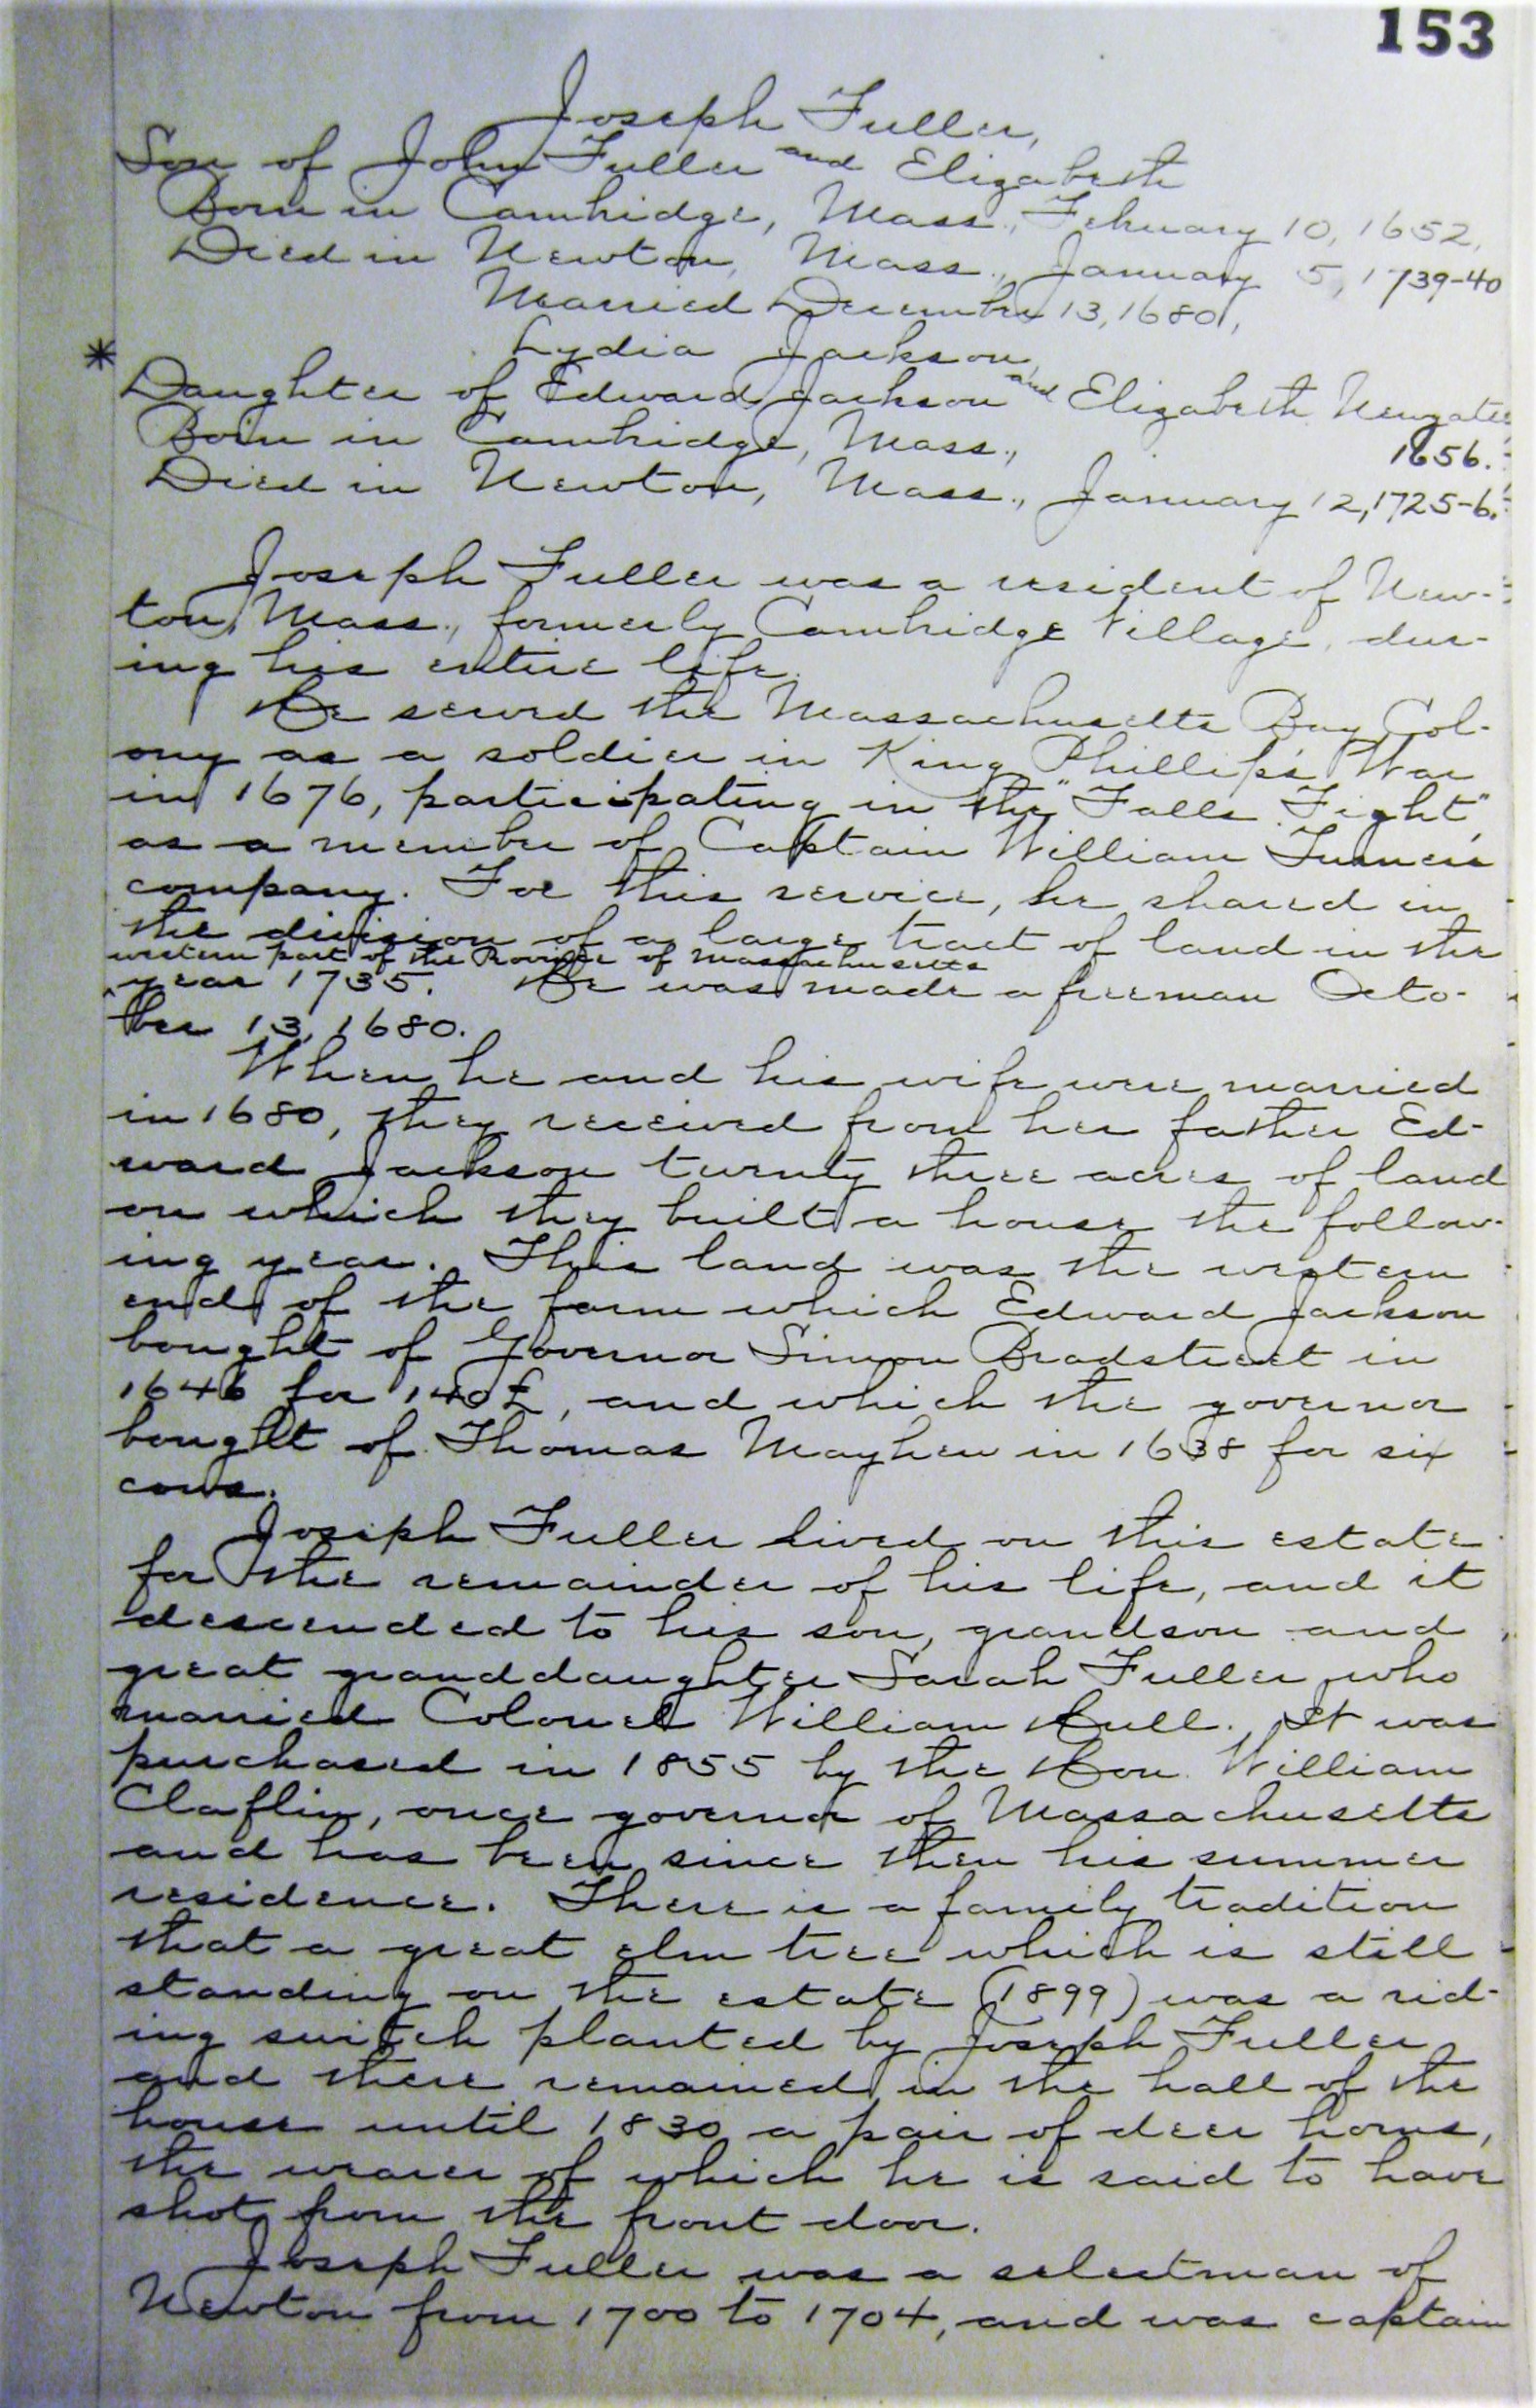 153
Joseph Fuller,
Son of John Fuller and Elizabeth
Born in Cambridge, Mass., February 10, 1652,
Died in Newton, Mass., January 5, 1739-40
Married December 13, 1680,
Lydia Jackson,
* Daughter of Edward Jackson and Elizabeth Newgate
Born in Cambridge, Mass., 1656.
Died in Newton, Mass., January 12, 1725-6.
Joseph Fuller was a resident of New-
ton, Mass., formerly Cambridge Village, dur-
ing his entire life.
He served the Massachusetts Bay Col-
ony as a soldier in King Phillip's War
in 1676, participating in the "Falls Fight",
as a member of Captain William Turner's
company. For this service, he shared in
the division of a large tract of land in the
western part of the Province of Massachusetts
year 1735. He was made a freeman Octo-
ber 13, 1680.
When he and his wife were married
in 1680, they received from her father Ed-
ward Jackson twenty three acres of land
on which they built a house the follow-
ing year. This land was the western
end of the farm which Edward Jackson
bought of Governor Simon Bradstreet in
1646 for 140£, and which the governor
bought of Thomas Mayhew in 1638 for six
cows.
Joseph Fuller lived on this estate
for the remainder of his life, and it
descended to his son, grandson and
great granddaughter Sarah Fuller, who
married Colonel William Hull. It was
purchased in 1855 by the Hon. William
Claflin, once governor of Massachusetts
and has been since then his summer
residence. There is a family tradition
that a great elm tree which is still
standing on the estate (1899) was a rid-
ing switch planted by Joseph Fuller
and there remained in the hall of the
house until 1830 a pair of deer horns,
the wearer of which he is said to have
shot from the front door.
Joseph Fuller was a selectman of
Newton from 1700 to 1704, and was captain